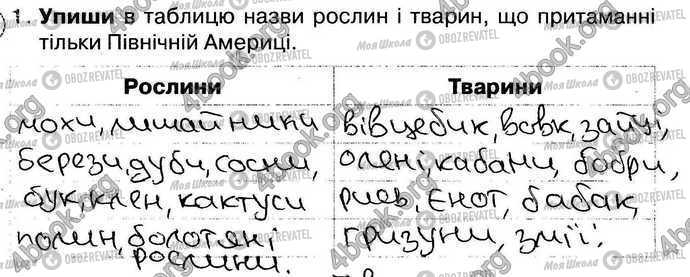 1. Упиши в таблицю назви рослин і тварин, що притаманні
тільки Північній Америці.
Рослини Тварини
мохи, лишайники вівцебик, вовк, зайці,
берези, дуби, сосни, олені, кабани, бобри,
бук, клен, кактуси рись, єнот, бабак,
полин, болотяні гризуни, змії.
рослини.